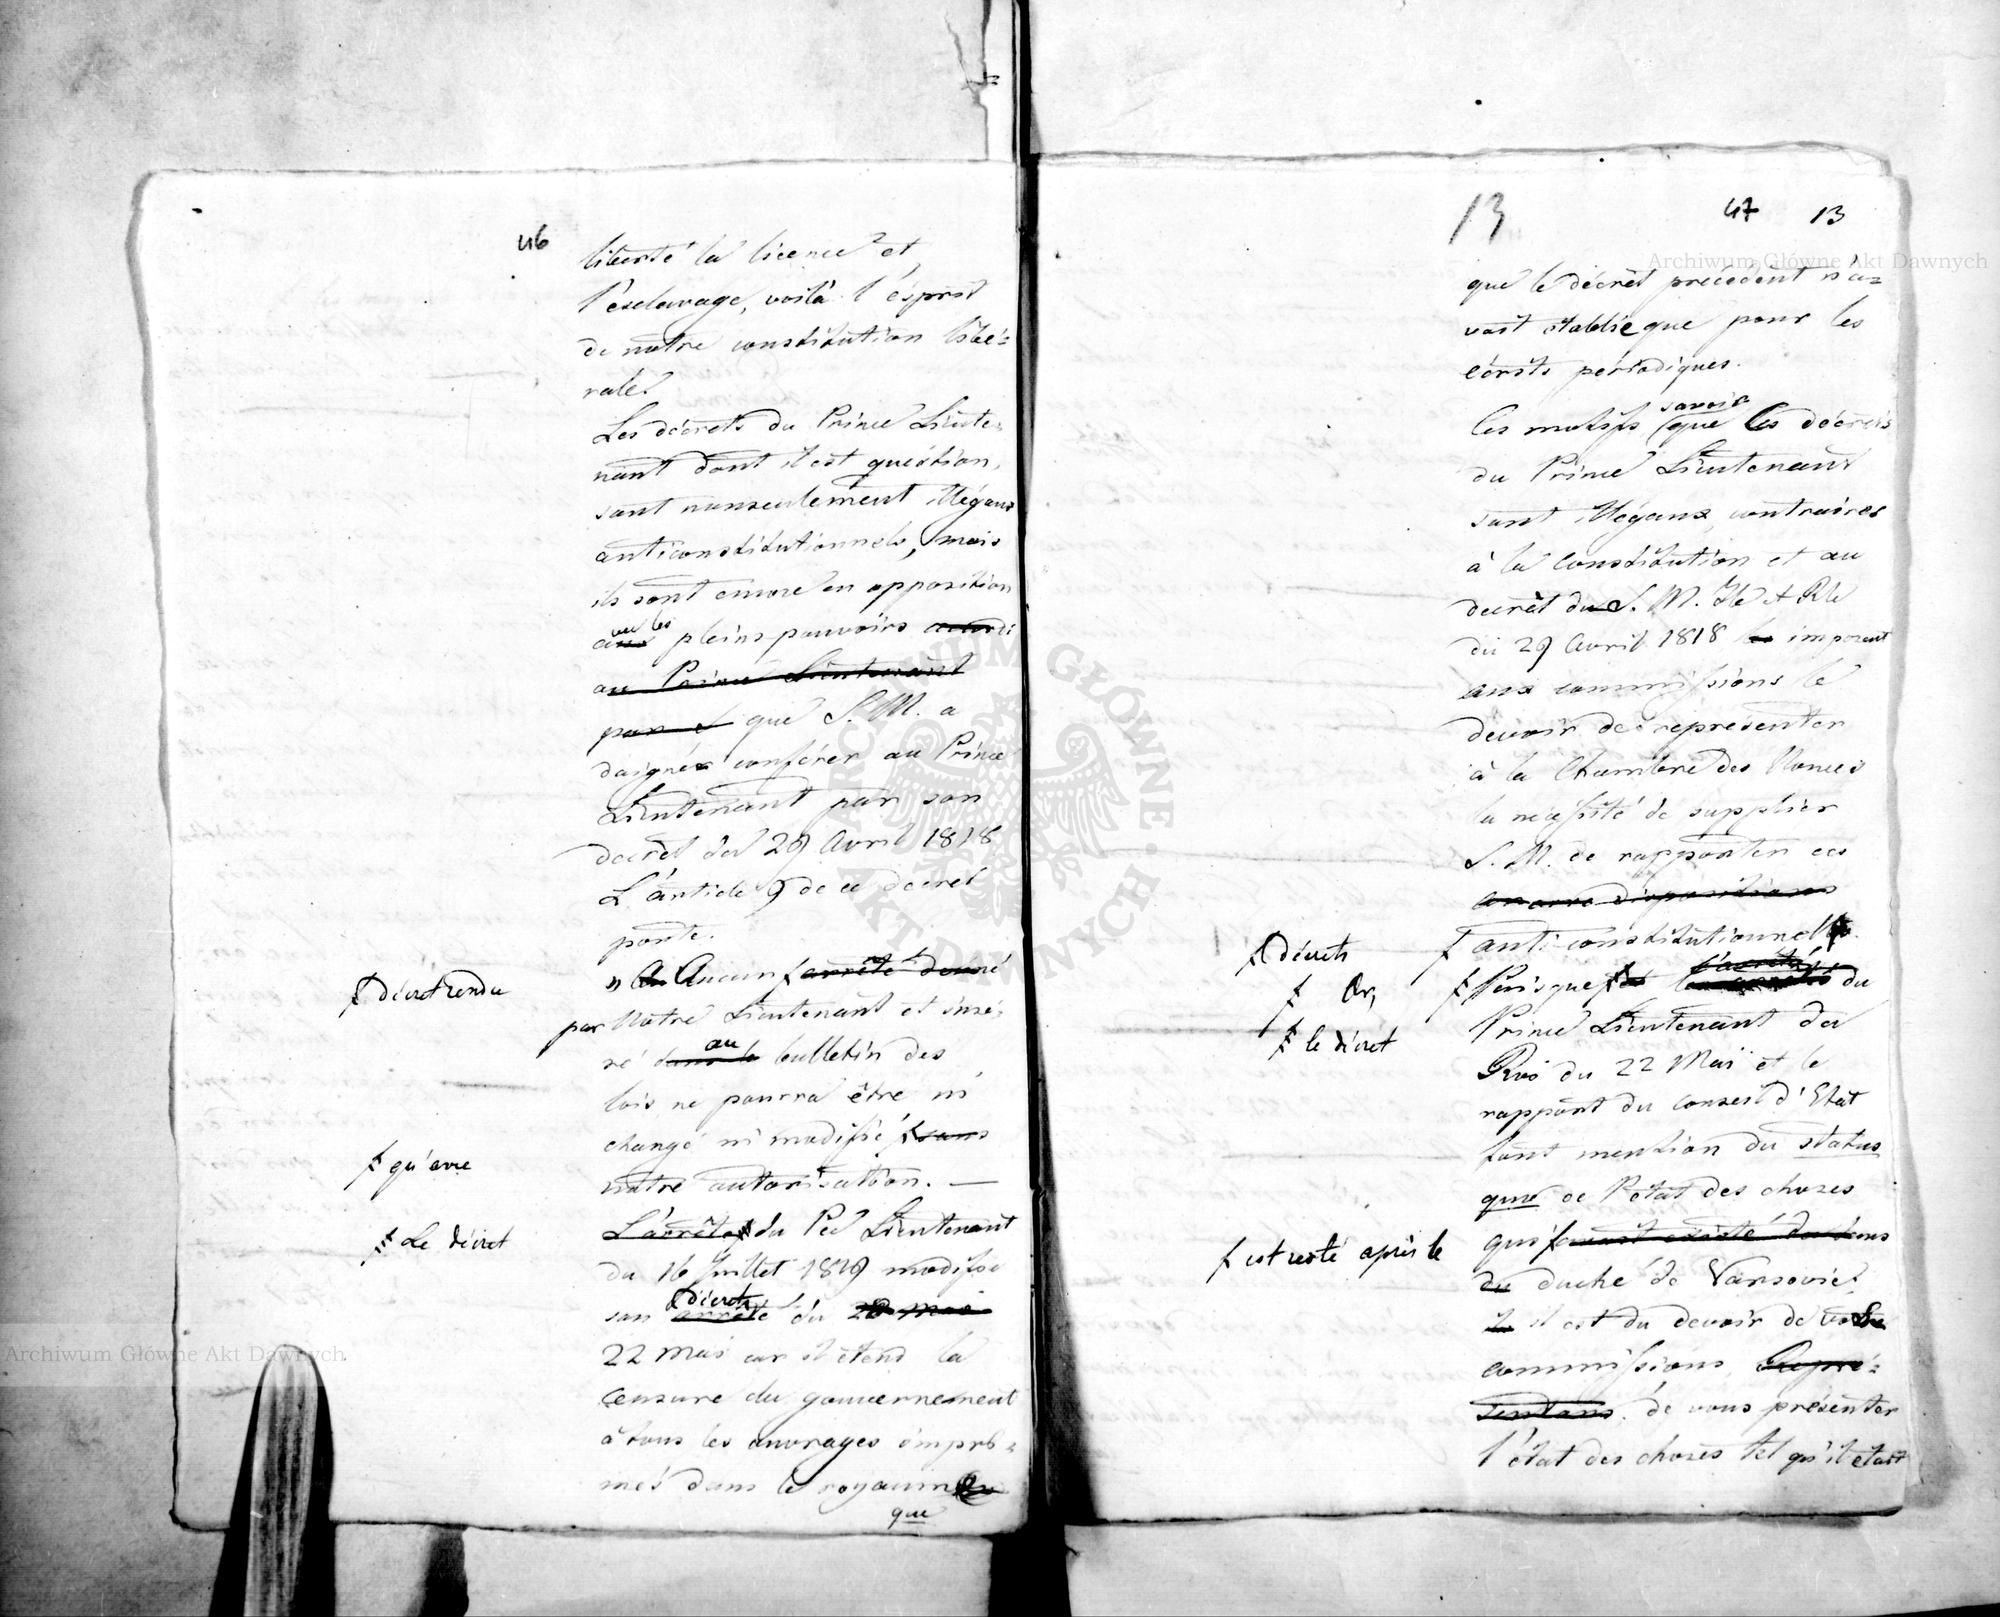 46
liberté la licence et
l'esclavage, voilà l'ésprit
de nôtre constitution libé=
rale.
Les décrets du Prince Lieute=
nant dont il est quéstion,
sont nonseulement illégaux
anticonstitutionnels, mais
ils sont encore en opposition
aux vu les pleins pouvoirs accordé
au Prince Lieutenant
par et que S. M. a
daigné conférer au Prince
Lieutenant par son
décrèt du 29 Avril 1818
L'article 9 de ce decret
porte.
" Aucun ƒ arrêté donné
ƒ décret rendu
par Nôtre Lieutenant et insé=
ré dans le au bulletin des
lois ne pourra être ni
changé ni modifié ƒ sans
ƒ qu'avec
nôtre autorisation. —
L'arrêté ƒ du Pce Lieutenant
ƒ Le décret
du 16 Juillet 1819 modifie
son arrêté ƒ décret du 28 Mai
22 Mai car il étend la
censure du gouvernement
à tous les ouvrages impri=
més dans le royaume
que
13 47 13
que le décrèt précédent n'a=
vait établie que pour les
écrits périodiques.
Ces motifs savoir que les décrets
du Prince Lieutenant
sont illégaux, contraires
à la Constitution et au
decrèt du S. M. Ile et Rle
du 29 Avril 1818 imposent
aux commissions le
devoir de représenter
à la Chambre des Nonces
la nécessité de supplier
S. M. de rapporter ces
dispositions
ƒ décrets
ƒ anticonstitutionnels.
ƒ Or,
ƒ Puisque l'arrêté du
ƒ le décret
Prince Lieutenant du
Roi du 22 Maï et le
rapport du conseil d'Etat
font mention du status
quo de l'état des choses
qui ƒ avait existé du tems
ƒ est resté après le
du duché de Varsovie,
il est du devoir de votre
commissions, Repré=
sentans de vous présenter
l'état des choses tel qu'il etait
Archiwum Główne Akt Dawnych
Archiwum Główne Akt Dawnych
ARCHIWUM GŁÓWNE AKT DAWNYCH